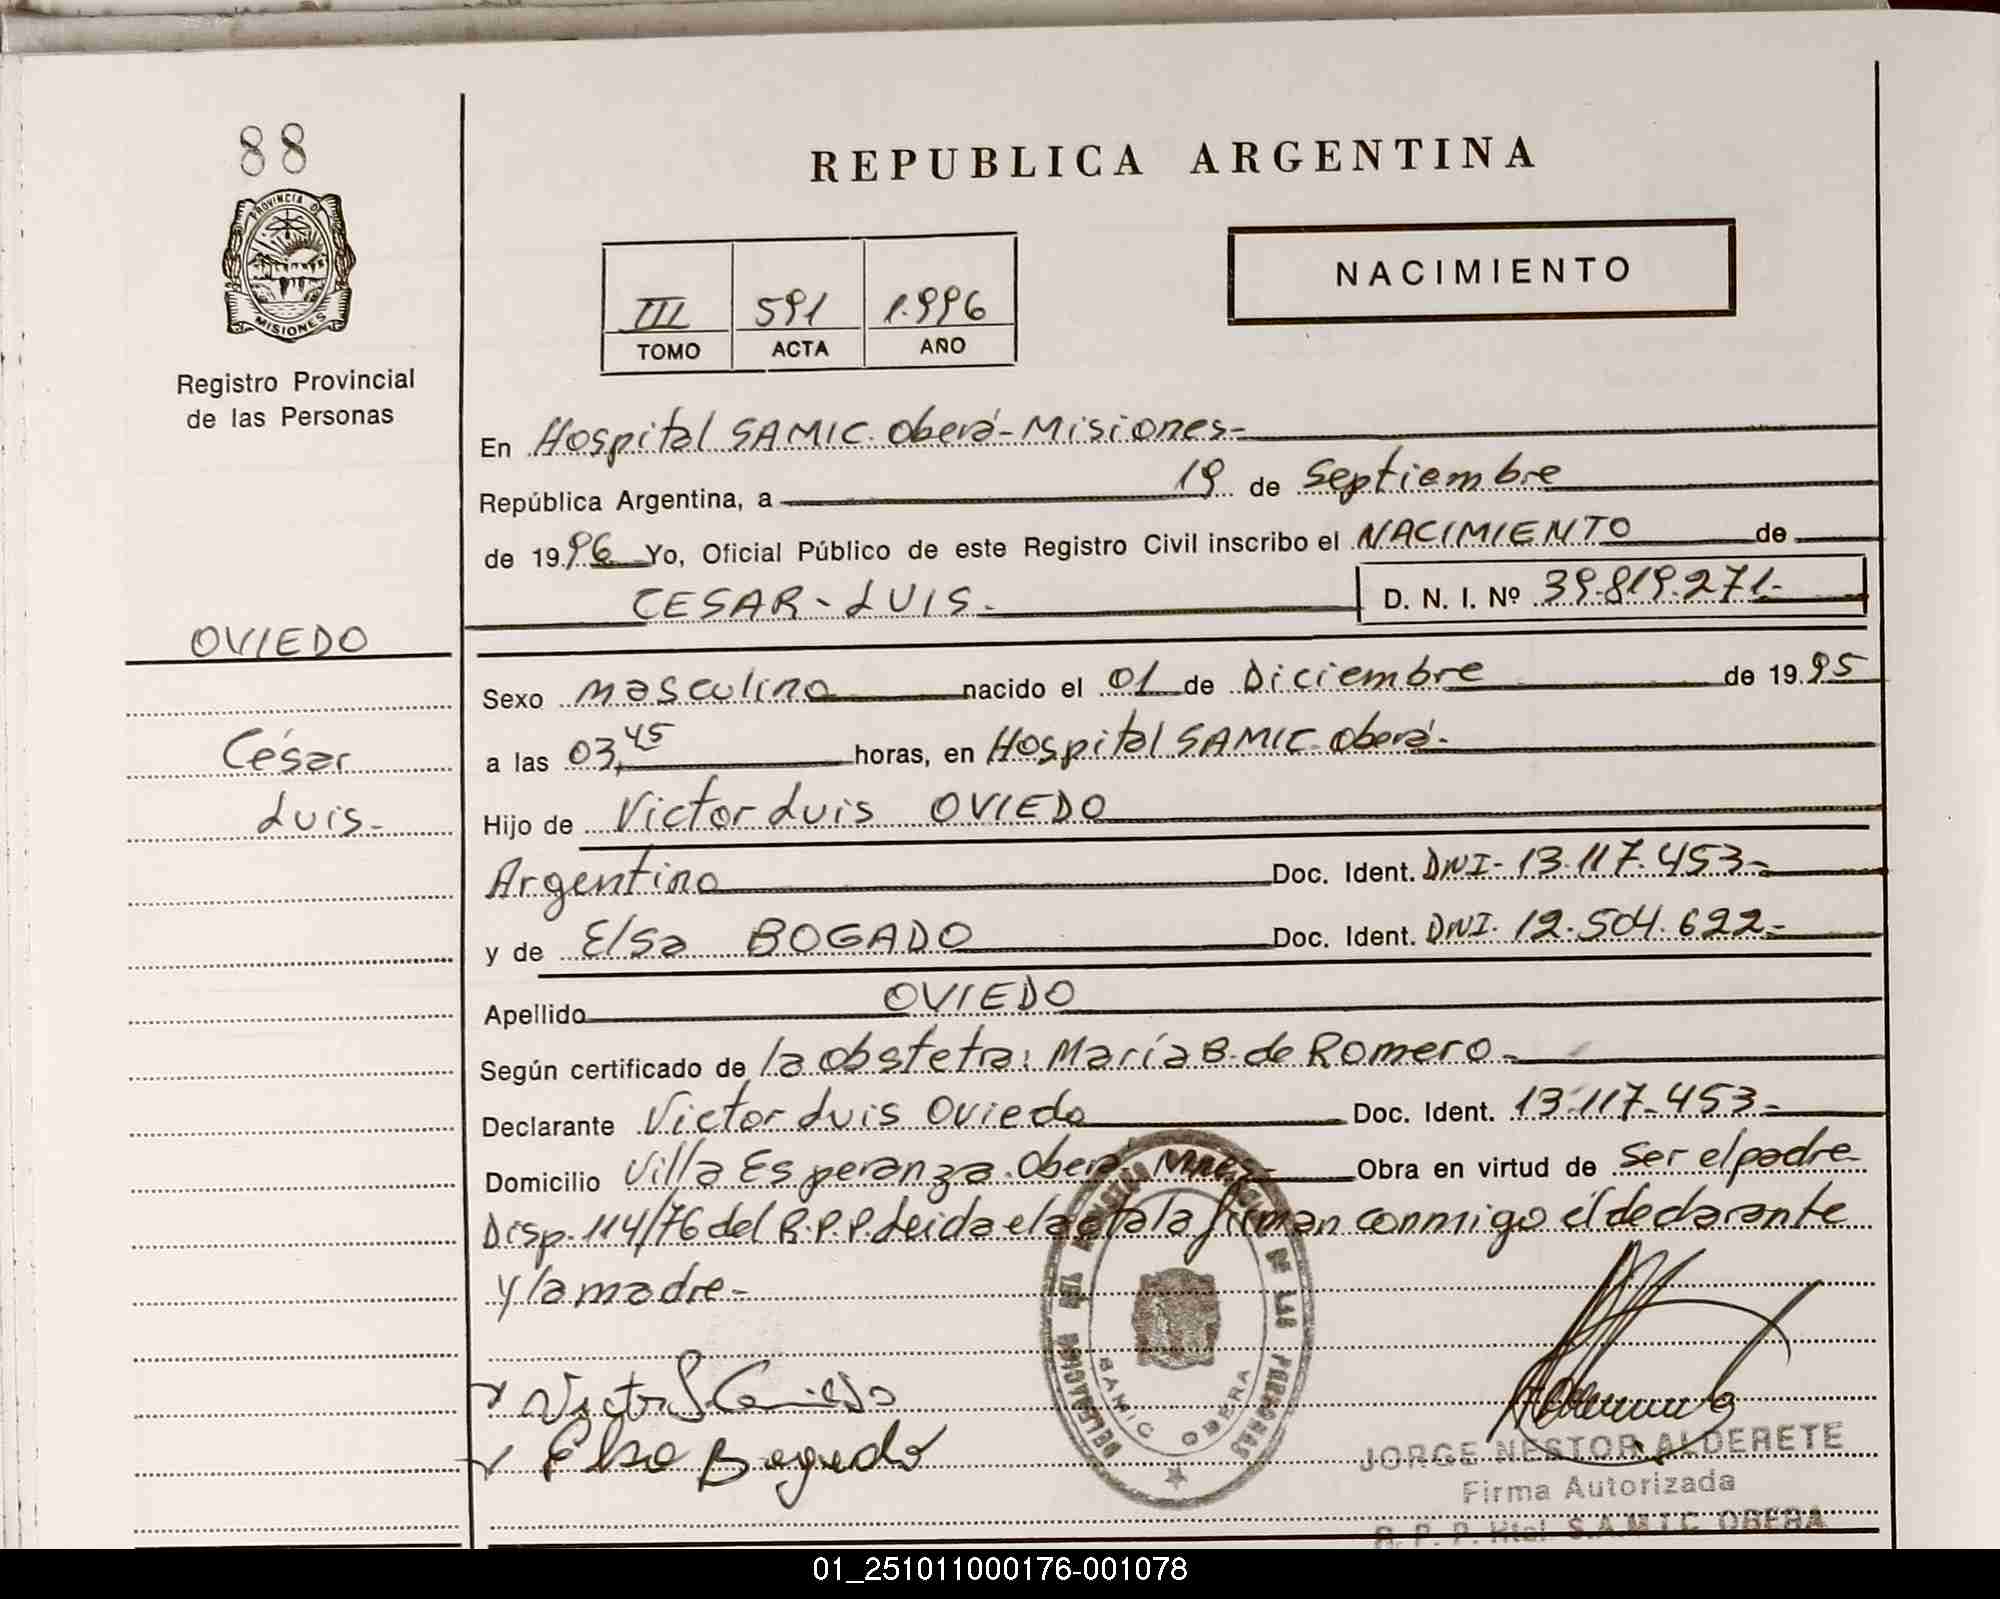 88
PROVINCIA D
MISIONES
Registro Provincial
de las Personas
REPUBLICA ARGENTINA
NACIMIENTO
III 591 1.996
TOMO ACTA AÑO
En Hospital SAMIC. Oberá - Misiones-
República Argentina, a 19 de Septiembre
de 1996 Yo, Oficial Público de este Registro Civil inscribo el NACIMIENTO de
CESAR - LUIS. D. N. I. Nº 39.819.271.-
OVIEDO
César
Luis.-
Sexo masculino nacido el 01 de Diciembre de 1995
a las 03,45 horas, en Hospital SAMIC. Oberá.
Hijo de Victor Luis OVIEDO
Argentino Doc. Ident. DNI- 13.117.453.-
y de Elsa BOGADO Doc. Ident. DNI. 12.504.622.-
Apellido OVIEDO
Según certificado de la obstetra: María B. de Romero.-
Declarante Victor Luis Oviedo Doc. Ident. 13.117.453.-
Domicilio Villa Esperanza. Oberá Mnes- Obra en virtud de ser el padre-
Disp. 114/76 del R.P.P. Leida el acta la firman conmigo el declarante
y la madre-
Elsa Bogado
DELEGACION DEL REGISTRO PROVINCIAL DE LAS PERSONAS
SAMIC OBERA
JORGE NESTOR ALDERETE
Firma Autorizada
R. P. P. Htal S.A.M.I.C OBERA
01_251011000176-001078